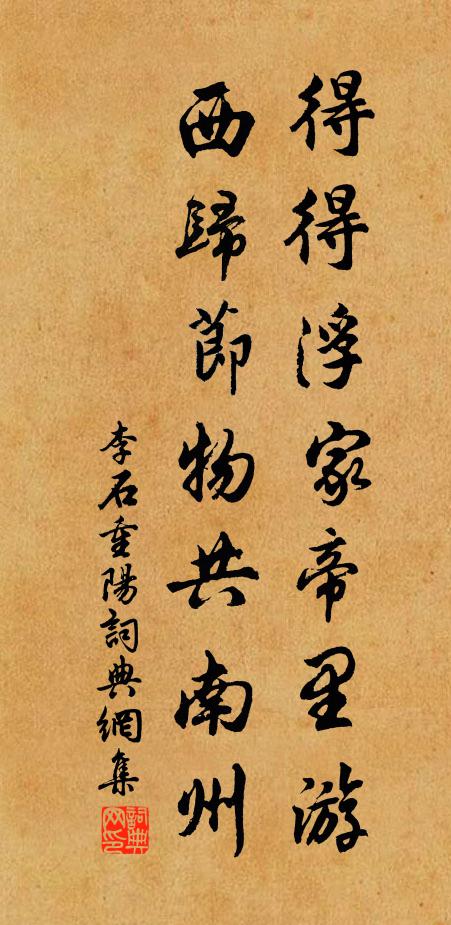 得得浮家帝里游
西歸節物共南州
李石重陽詞典網集
詞典网印